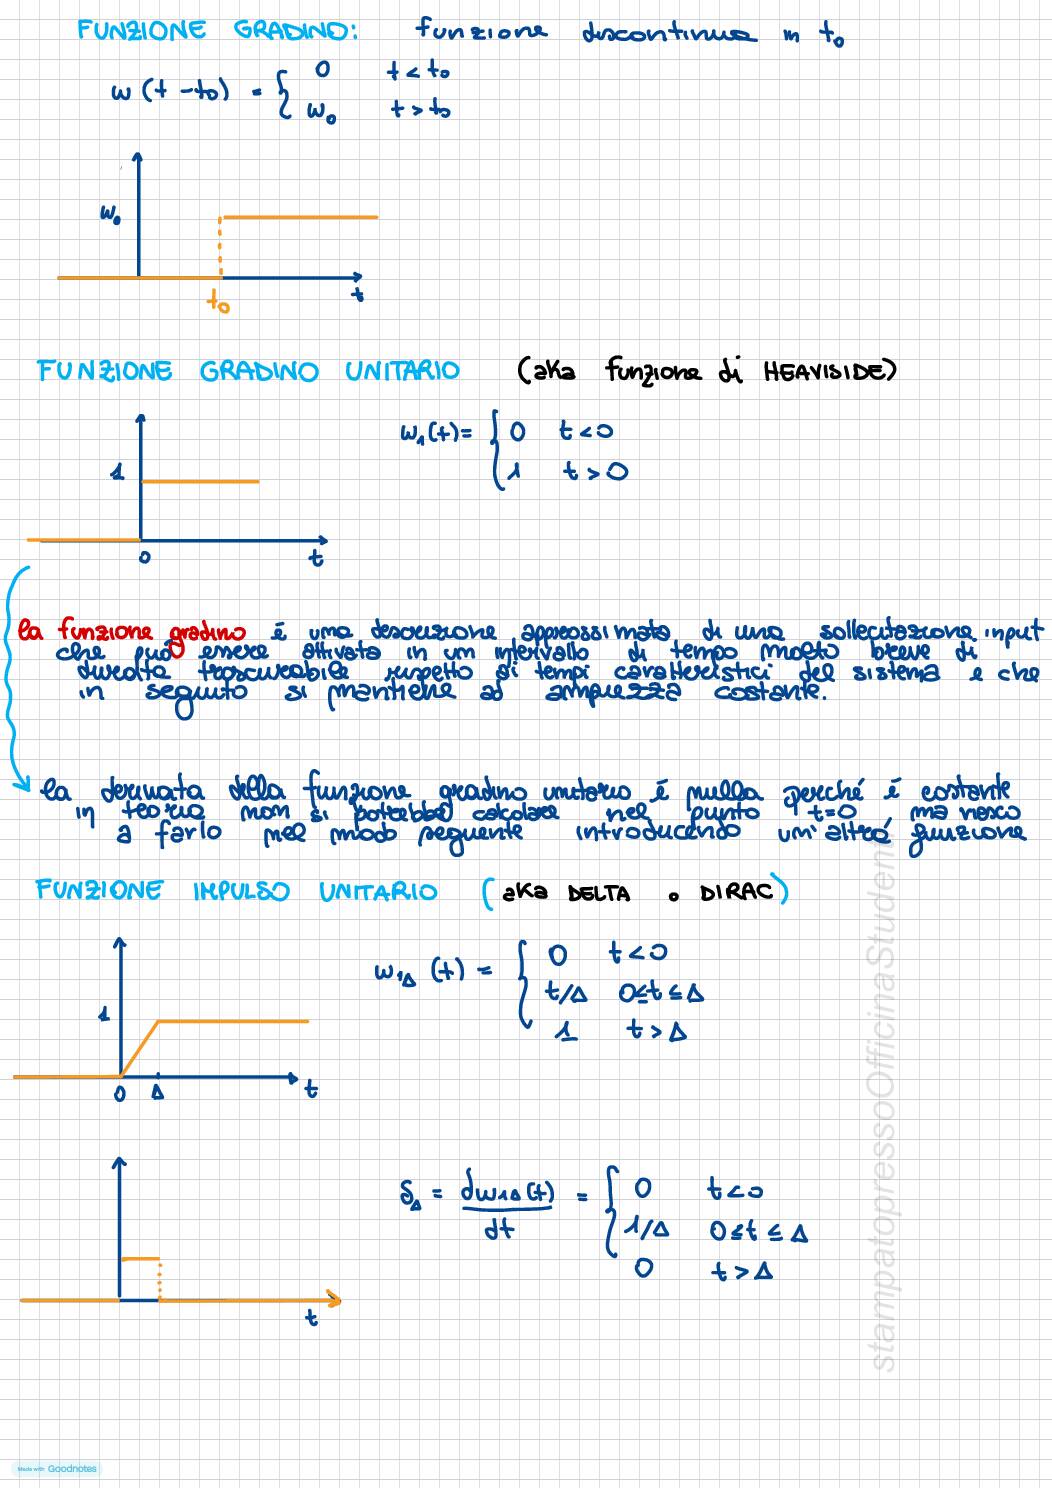 FUNZIONE GRADINO: funzione discontinua in t₀
w (t - t₀) = { 0 t < t₀
w₀ t > t₀
w₀
t₀ t
FUNZIONE GRADINO UNITARIO (aka funzione di HEAVISIDE)
w₁(t) = { 0 t < 0
1 t > 0
1
0 t
la funzione gradino è una descrizione approssimata di una sollecitazione input
che può essere attivata in un intervallo di tempo molto breve di
durata trascurabile rispetto ai tempi caratteristici del sistema e che
in seguito si mantiene ad ampiezza costante.
la derivata della funzione gradino unitario è nulla perché è costante
in teoria non si potrebbe calcolare nel punto t=0 ma riesco
a farlo nel modo seguente introducendo un'altra funzione
FUNZIONE IMPULSO UNITARIO (aka DELTA o DIRAC)
w₁Δ (t) = { 0 t < 0
t/Δ 0≤t≤Δ
1 t > Δ
1
0 Δ t
δΔ = dw₁Δ(t)/dt = { 0 t<0
1/Δ 0≤t≤Δ
0 t > Δ
t
stampatopressoOfficinaStudenti
Made with Goodnotes